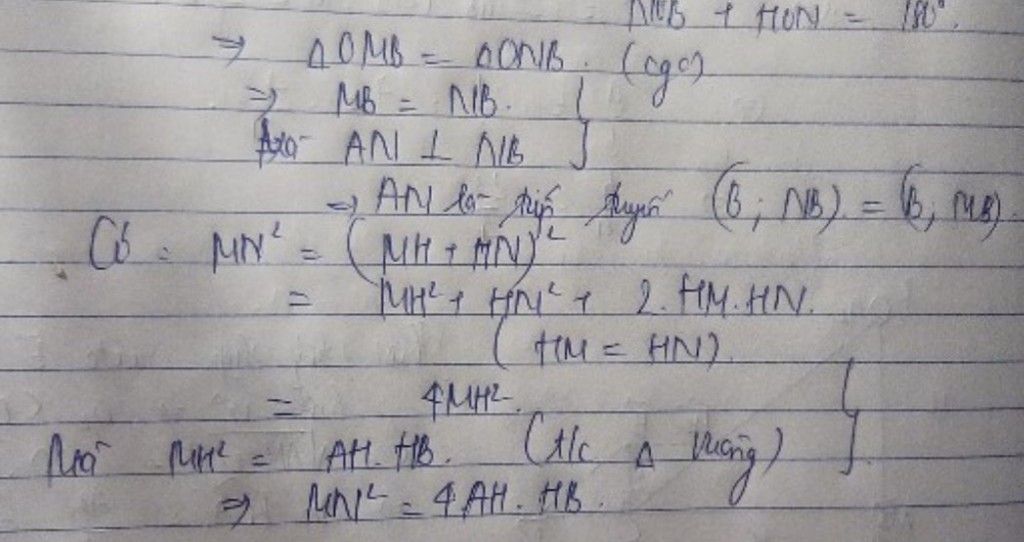 + HON = 180°.
⇒ ΔOMB = ΔONB. (cgc)
⇒ MB = NB. }
Mà AN ⊥ NB
⇒ AN là tiếp tuyến (B; NB) = (B; MB).
Có: MN² = (MH + HN)²
= MH² + HN² + 2.HM.HN.
(HM = HN)
= 4MH². }
Mà MH² = AH.HB. (t/c Δ vuông)
⇒ MN² = 4AH.HB.